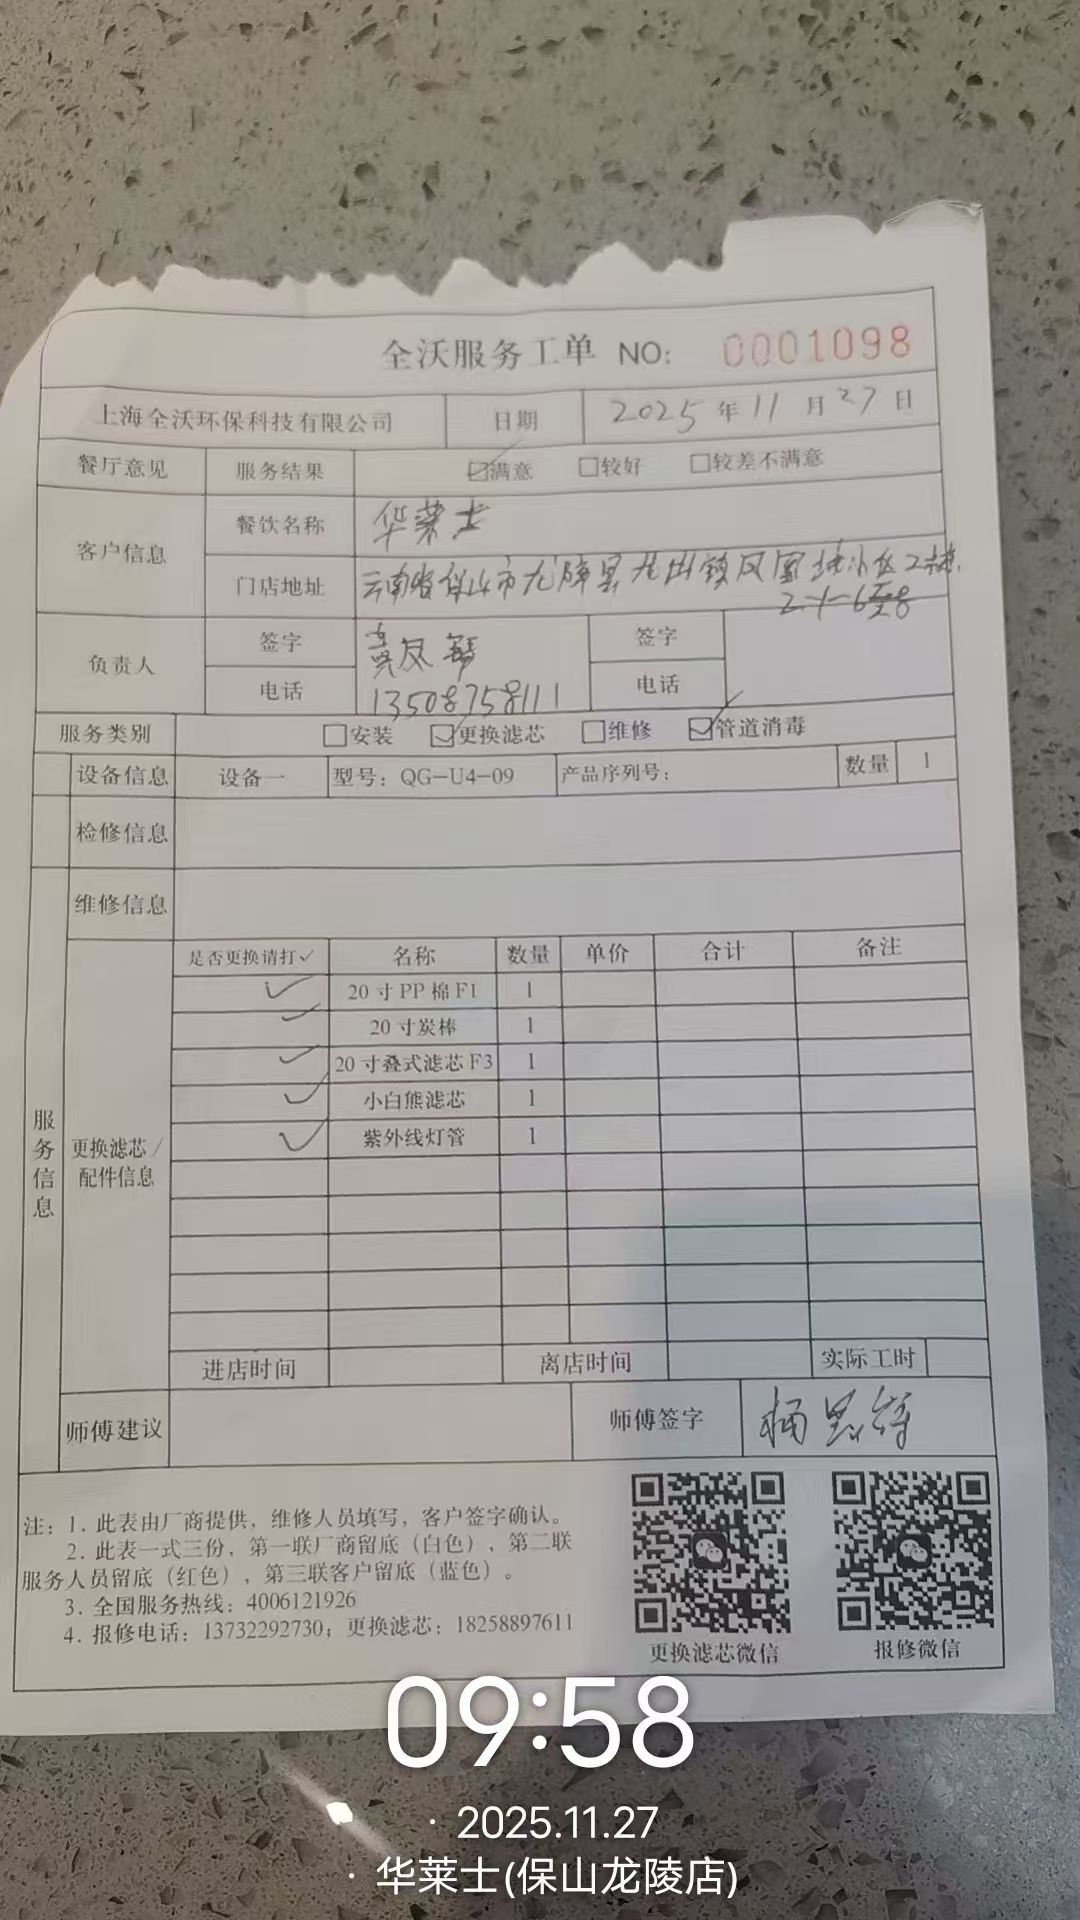 全沃服务工单 NO: 0001098
上海全沃环保科技有限公司 日期 2025年11月27日
餐厅意见 服务结果 ☑满意 □较好 □较差不满意
客户信息 餐饮名称 华莱士
门店地址 云南省保山市龙陵县龙山镇凤凰城小区2栋
2-1-6至8
负责人 签字 凤 签字
电话 13508758111 电话
服务类别 □安装 ☑更换滤芯 □维修 ☑管道消毒
设备信息 设备一 型号: QG-U4-09 产品序列号: 数量 1
检修信息
维修信息
服务信息
更换滤芯/配件信息
是否更换请打✓ 名称 数量 单价 合计 备注
✓ 20寸PP棉F1 1
✓ 20寸炭棒 1
✓ 20寸叠式滤芯F3 1
✓ 小白熊滤芯 1
✓ 紫外线灯管 1
进店时间 离店时间 实际工时
师傅建议 师傅签字
注: 1. 此表由厂商提供, 维修人员填写, 客户签字确认。
2. 此表一式三份, 第一联厂商留底(白色), 第二联
服务人员留底(红色), 第三联客户留底(蓝色)。
3. 全国服务热线: 4006121926
4. 报修电话: 13732292730; 更换滤芯: 18258897611
更换滤芯微信 报修微信
09:58
· 2025.11.27
· 华莱士(保山龙陵店)